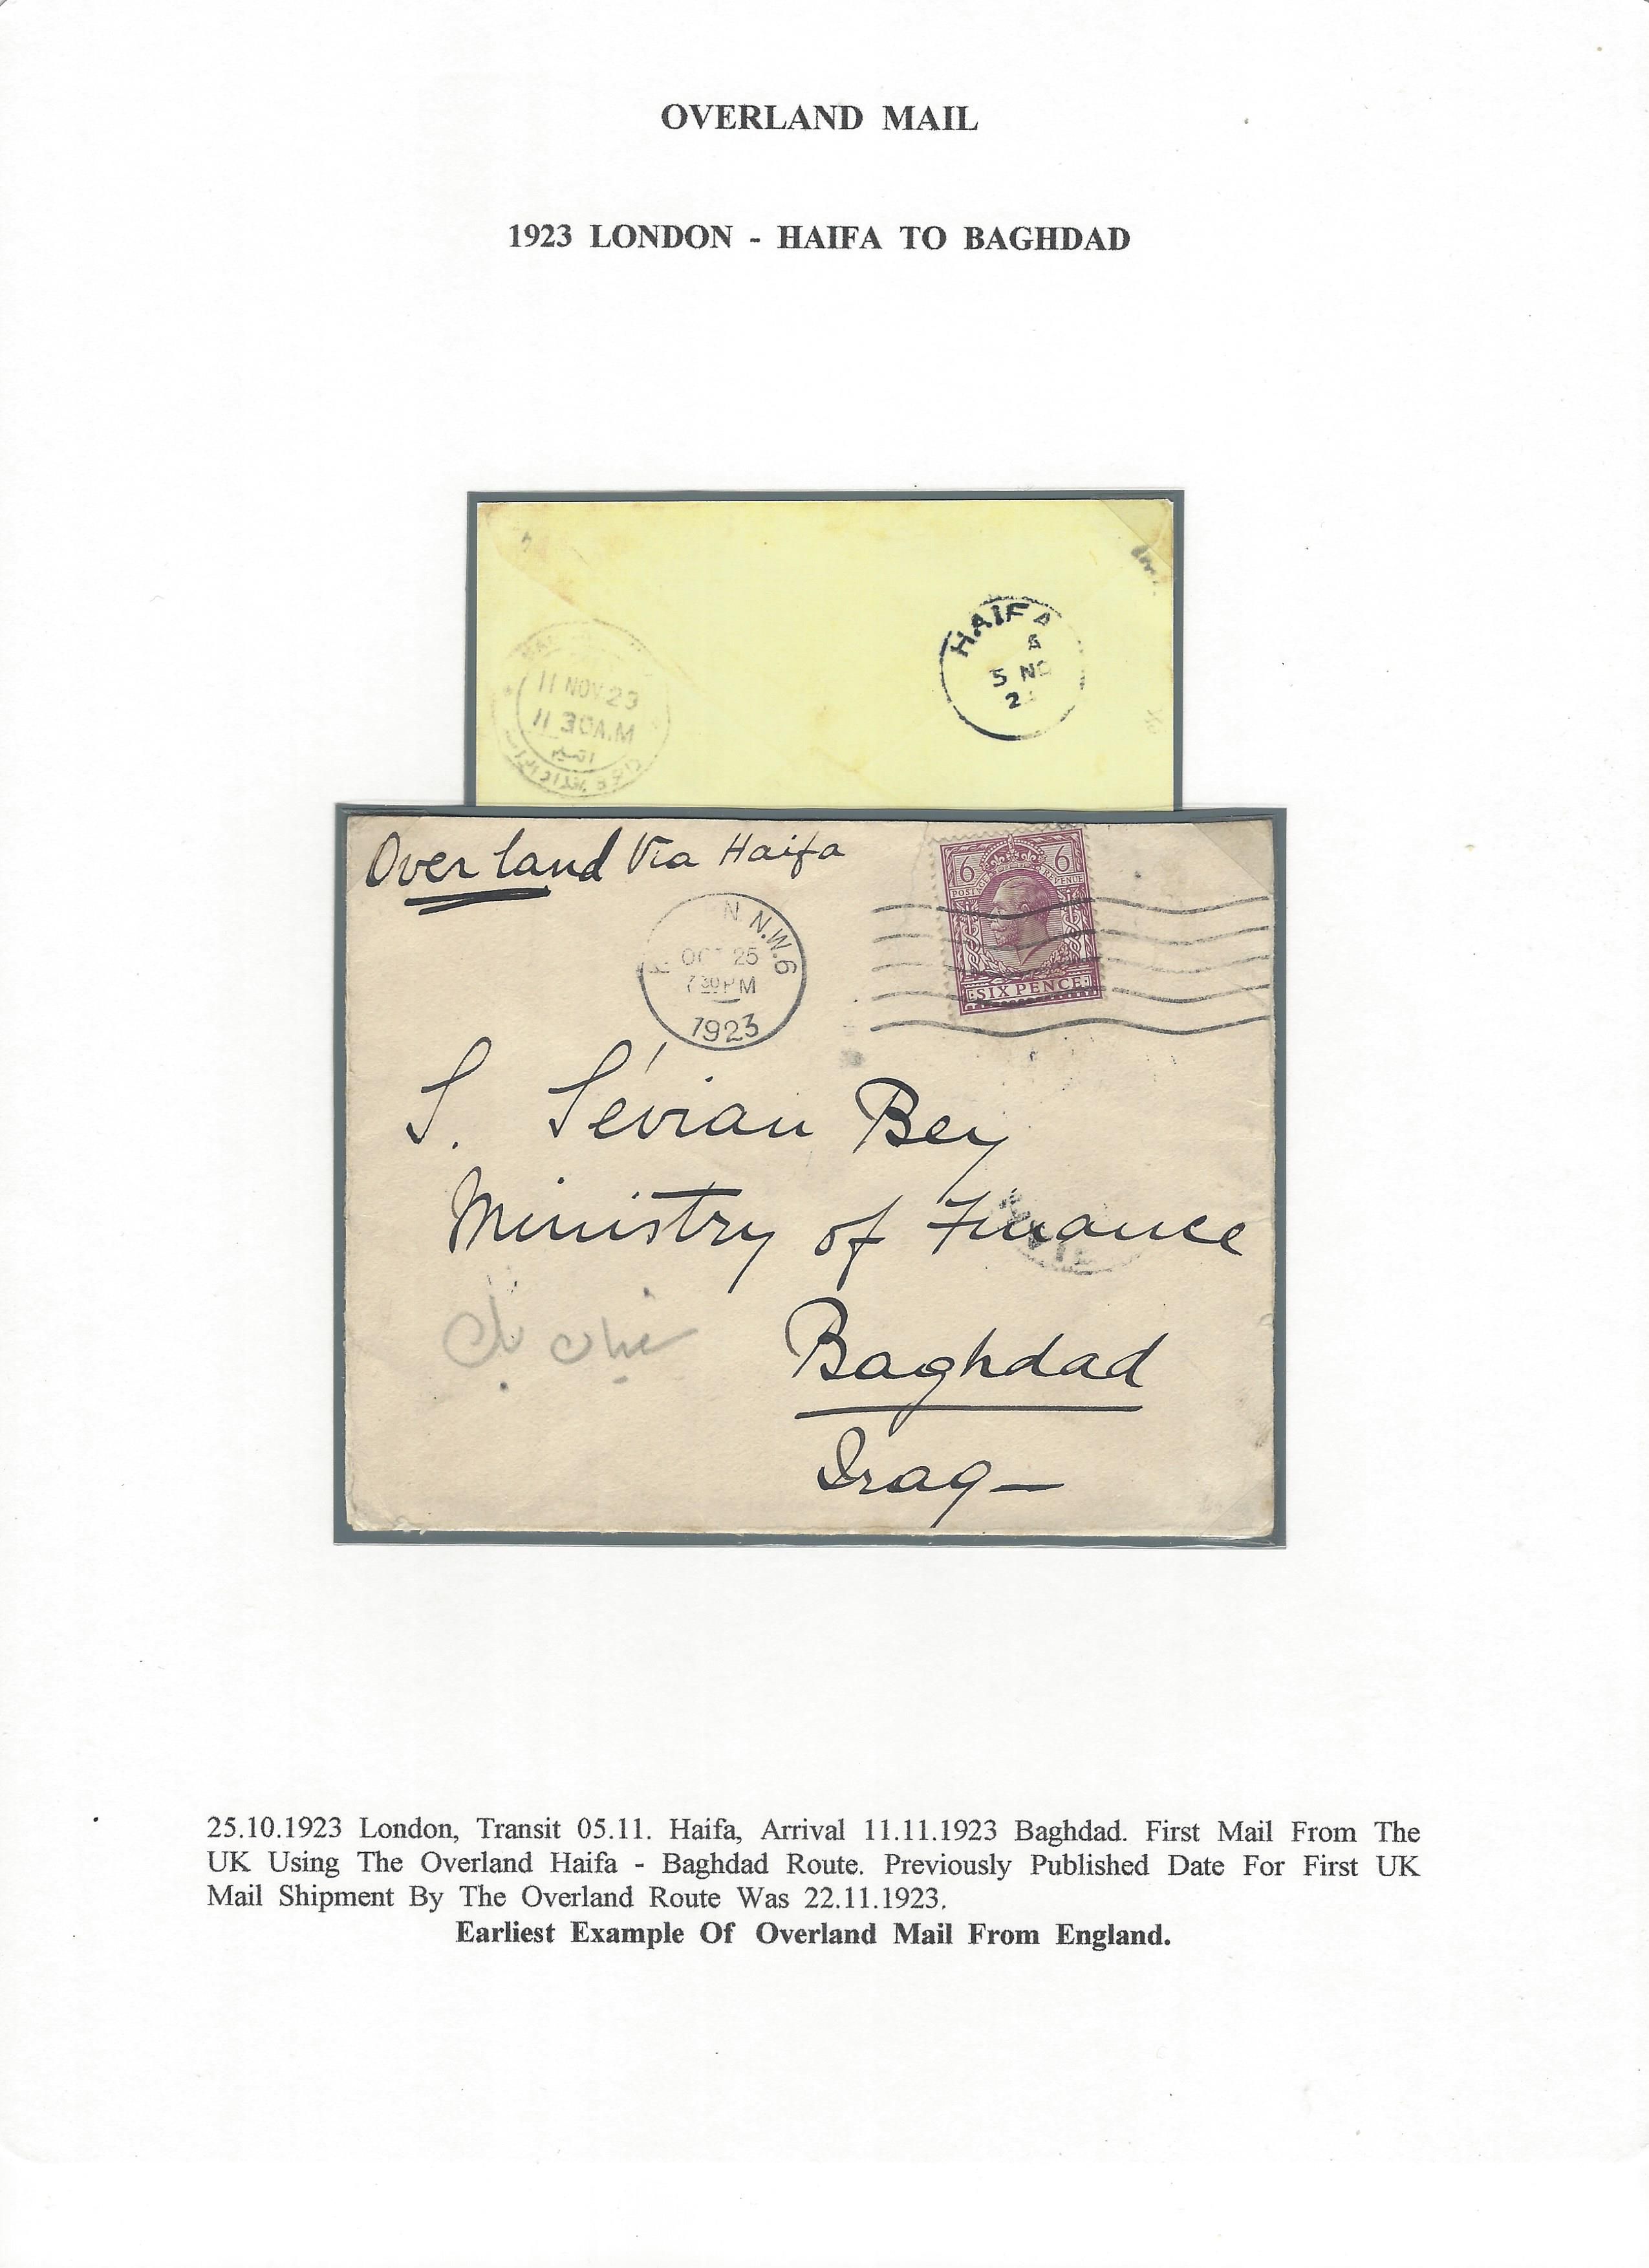 OVERLAND MAIL
1923 LONDON - HAIFA TO BAGHDAD
HAIFA
5 NO
11 NOV. 23
11 30A.M
Overland Via Haifa
6 6
REVENUE
SIX PENCE
N N.W.6
OCT 25
7 30 PM
1923
S. Sévian Bey
Ministry of Finance
Baghdad
Iraq
25.10.1923 London, Transit 05.11. Haifa, Arrival 11.11.1923 Baghdad. First Mail From The
UK Using The Overland Haifa - Baghdad Route. Previously Published Date For First UK
Mail Shipment By The Overland Route Was 22.11.1923.
Earliest Example Of Overland Mail From England.